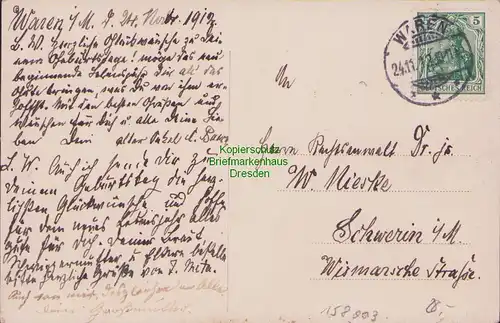 Waren i/M. d. 24. Novbr. 1912.
L. W. Herzliche Glückwünsche zu Dei-
nem Geburtstage! möge das neu
beginnende Lebensjahr Dir all' das
Gute bringen, was Du von ihm er-
hoffst. Mit den besten Grüßen und
Wünschen für Dich u. alle Deine Lie-
ben Dein alter Onkel
L. W. Auch ich sende dir zu
Deinem Geburtstag die herz-
lichsten Glückwünsche und hoffe
für dein neues Lebensjahr alles
gute für Dich. Deiner Braut,
Schwiegermutter u. Eltern bestelle
bitte herzliche Grüße von T. Meta.
Auch von mir
deine Großmutter
WAREN
24.11.12
5
DEUTSCHES REICH
An
Herrn Rechtsanwalt Dr. jr.
W. Nieske
Schwerin i/M.
Wismarsche Straße.
Kopierschutz
Briefmarkenhaus
Dresden
158003